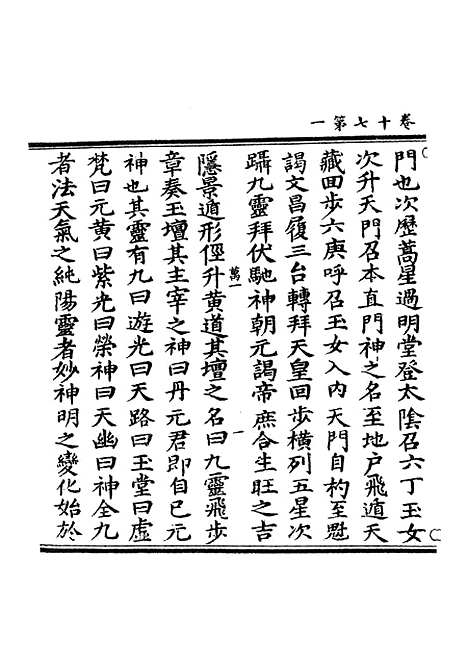 卷十七第一
門也次歷蒿星過明堂登太陰召六丁玉女
次升天門召本直門神之名至地户飛遁天
藏回步六庚呼召玉女入内天門自杓至魁
謁文昌履三台轉拜天皇回步橫列五星次
躡九靈拜伏馳神朝元謁帝庶合生旺之吉
萬一
一
隱景道形徑升黄道其壇之名曰九靈飛步
章奏玉壇其主宰之神曰丹元君即自已元
神也其靈有九曰遊光曰天路曰玉堂曰虚
梵曰元黄曰紫光曰榮神曰天幽曰神全九
者法天氣之純陽靈者妙神明之變化始於